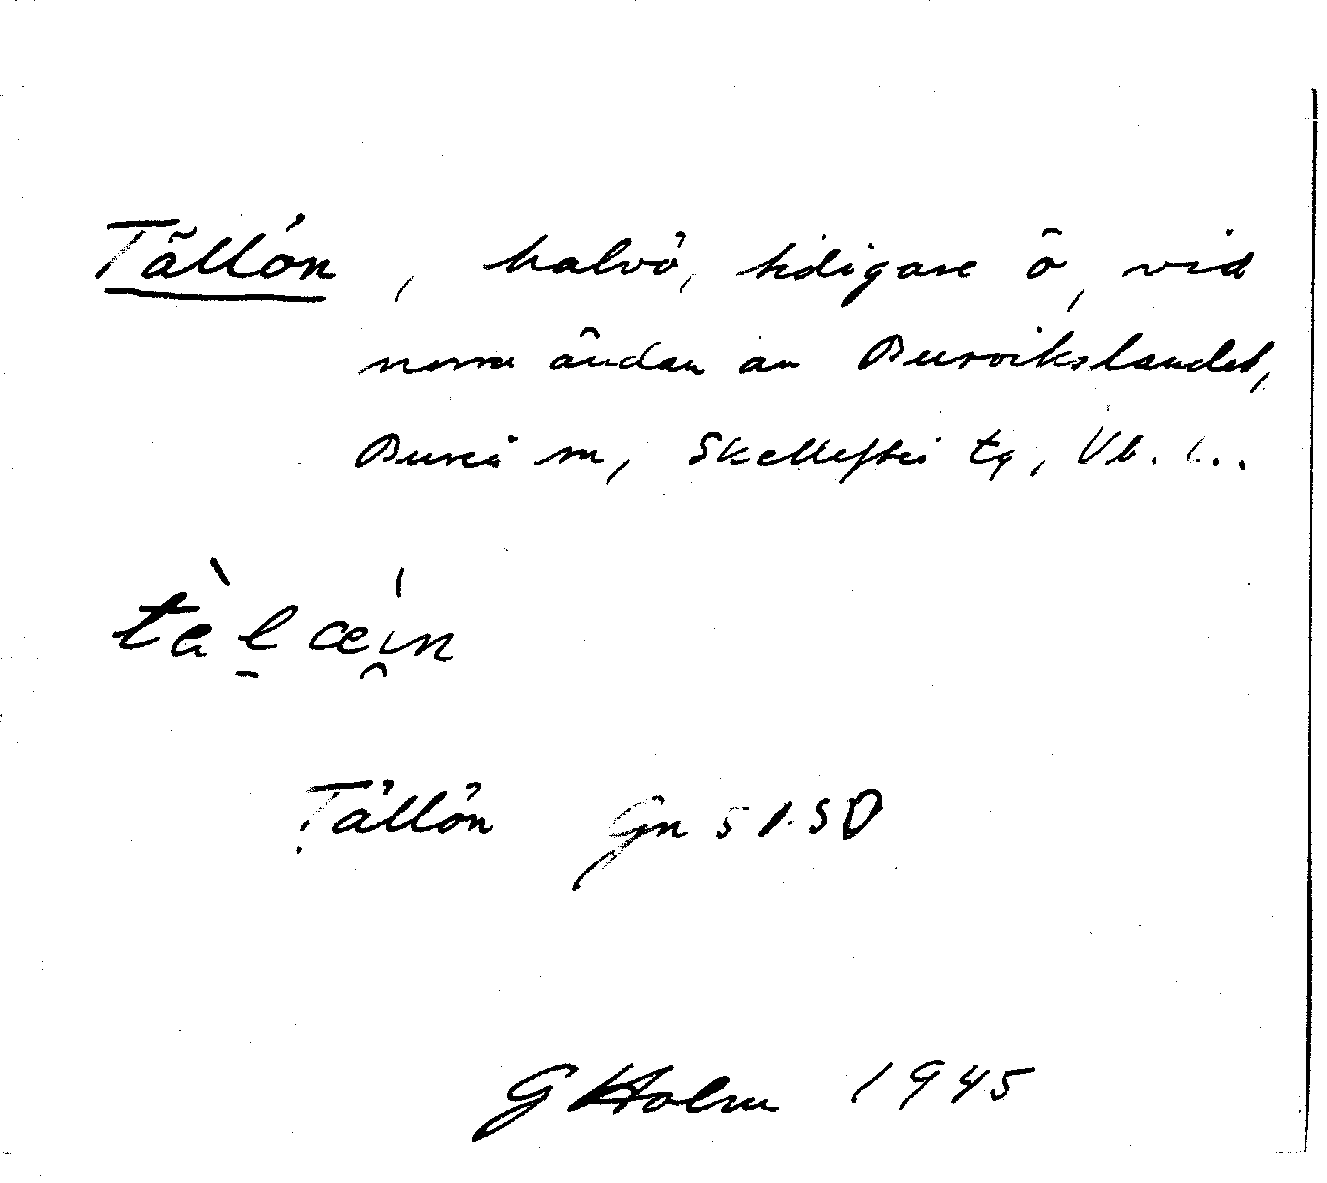 Tällön, halvö, tidigare ö, vid
norra ändan av Burvikslandet,
Bureå sn, Skellefteå tg, Vb. l..
tèl̠œi̯n
Tällön Gn 51.50
G Holm 1945